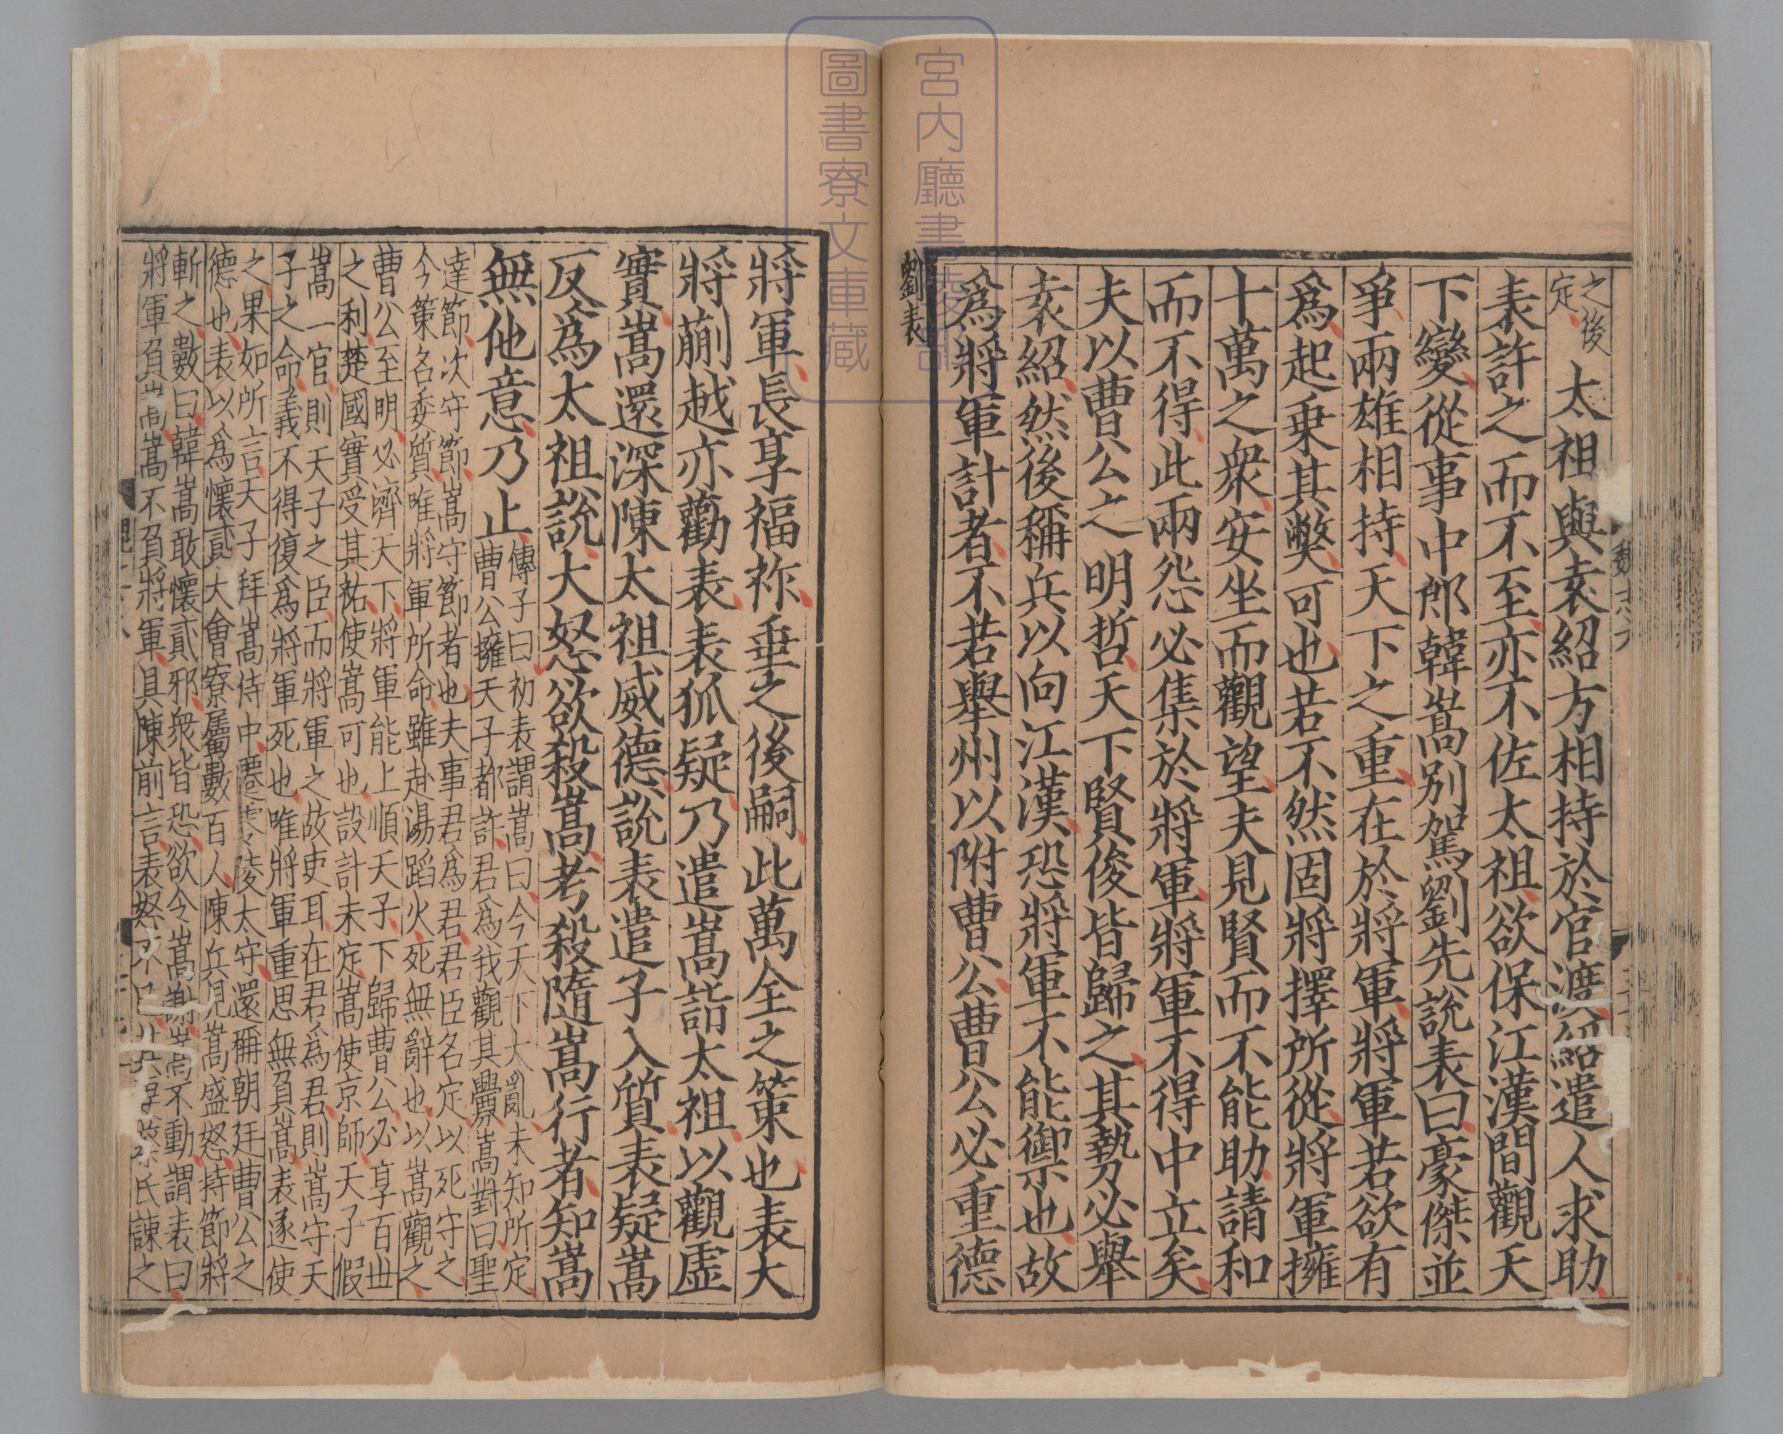 之後
定
太祖與袁紹方相持於官渡紹遣人求助
表許之而不至亦不佐太祖欲保江漢間觀天
下變從事中郎韓嵩別駕劉先說表曰豪傑並
爭兩雄相持天下之重在於將軍將軍若欲有
爲起乗其弊可也若不然固將擇所從將軍擁
十萬之衆安坐而觀望夫見賢而不能助請和
而不得此兩怨必集於將軍將軍不得中立矣
夫以曹公之明哲天下賢俊皆歸之其勢必舉
袁紹然後稱兵以向江漢恐將軍不能禦也故
爲將軍計者不若舉州以附曹公曹公必重德
劉表
將軍長享福祚垂之後嗣此萬全之策也表大
將蒯越亦勸表表狐疑乃遣嵩詣太祖以觀虛
實嵩還深陳太祖威德說表遣子入質表疑嵩
反爲太祖說大怒欲殺嵩考殺隨嵩行者知嵩
無他意乃止
傳子曰初表謂嵩曰今天下大亂未知所定
曹公擁天子都許君爲我觀其釁嵩對曰聖
達節次守節嵩守節者也夫事君爲君君臣名定以死守之
今策名委質唯將軍所命雖赴湯蹈火死無辭也以嵩觀之
曹公至明必濟天下將軍能上順天子下歸曹公必享百世
之利楚國實受其祐使嵩可也設計未定嵩使京師天子假
嵩一官則天子之臣而將軍之故吏耳在君爲君則嵩守天
子之命義不得復爲將軍死也唯將軍重思無負嵩表遂使
之果如所言天子拜嵩侍中遷零陵太守還稱朝廷曹公之
德也表以爲懷貳大會寮屬數百人陳兵見嵩盛怒持節將
斬之數曰韓嵩敢懷貳邪衆皆恐欲令嵩謝嵩不動謂表曰
將軍負嵩嵩不負將軍具陳前言表怒不已其妻蔡氏諫之
宮内廳書陵部
圖書寮文庫藏